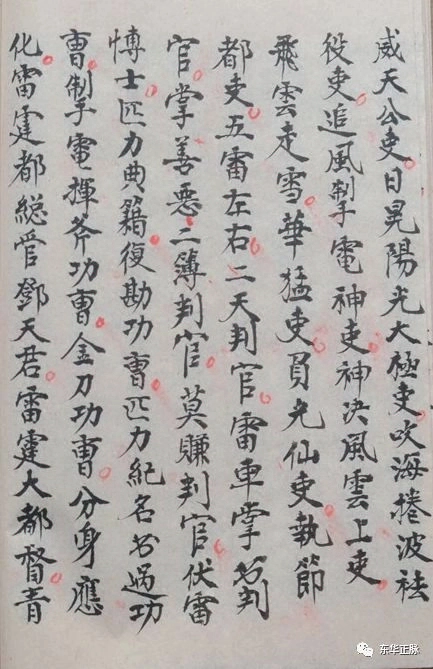 威天公吏日晃陽光大極吏吹海捲波祛
役吏追風掣電神吏神决風雲上吏
飛雲走雪華猛吏員光仙吏執節
都吏五雷左右二天判官雷車掌名判
官掌善惡二簿判官莫賺判官伏雷
博士匹力典籍復勘功曹匹力紀名書過功
曹掣電揮斧功曹金刀功曹分身應
化雷霆都総管鄧天君雷霆大都督青
东华正脉